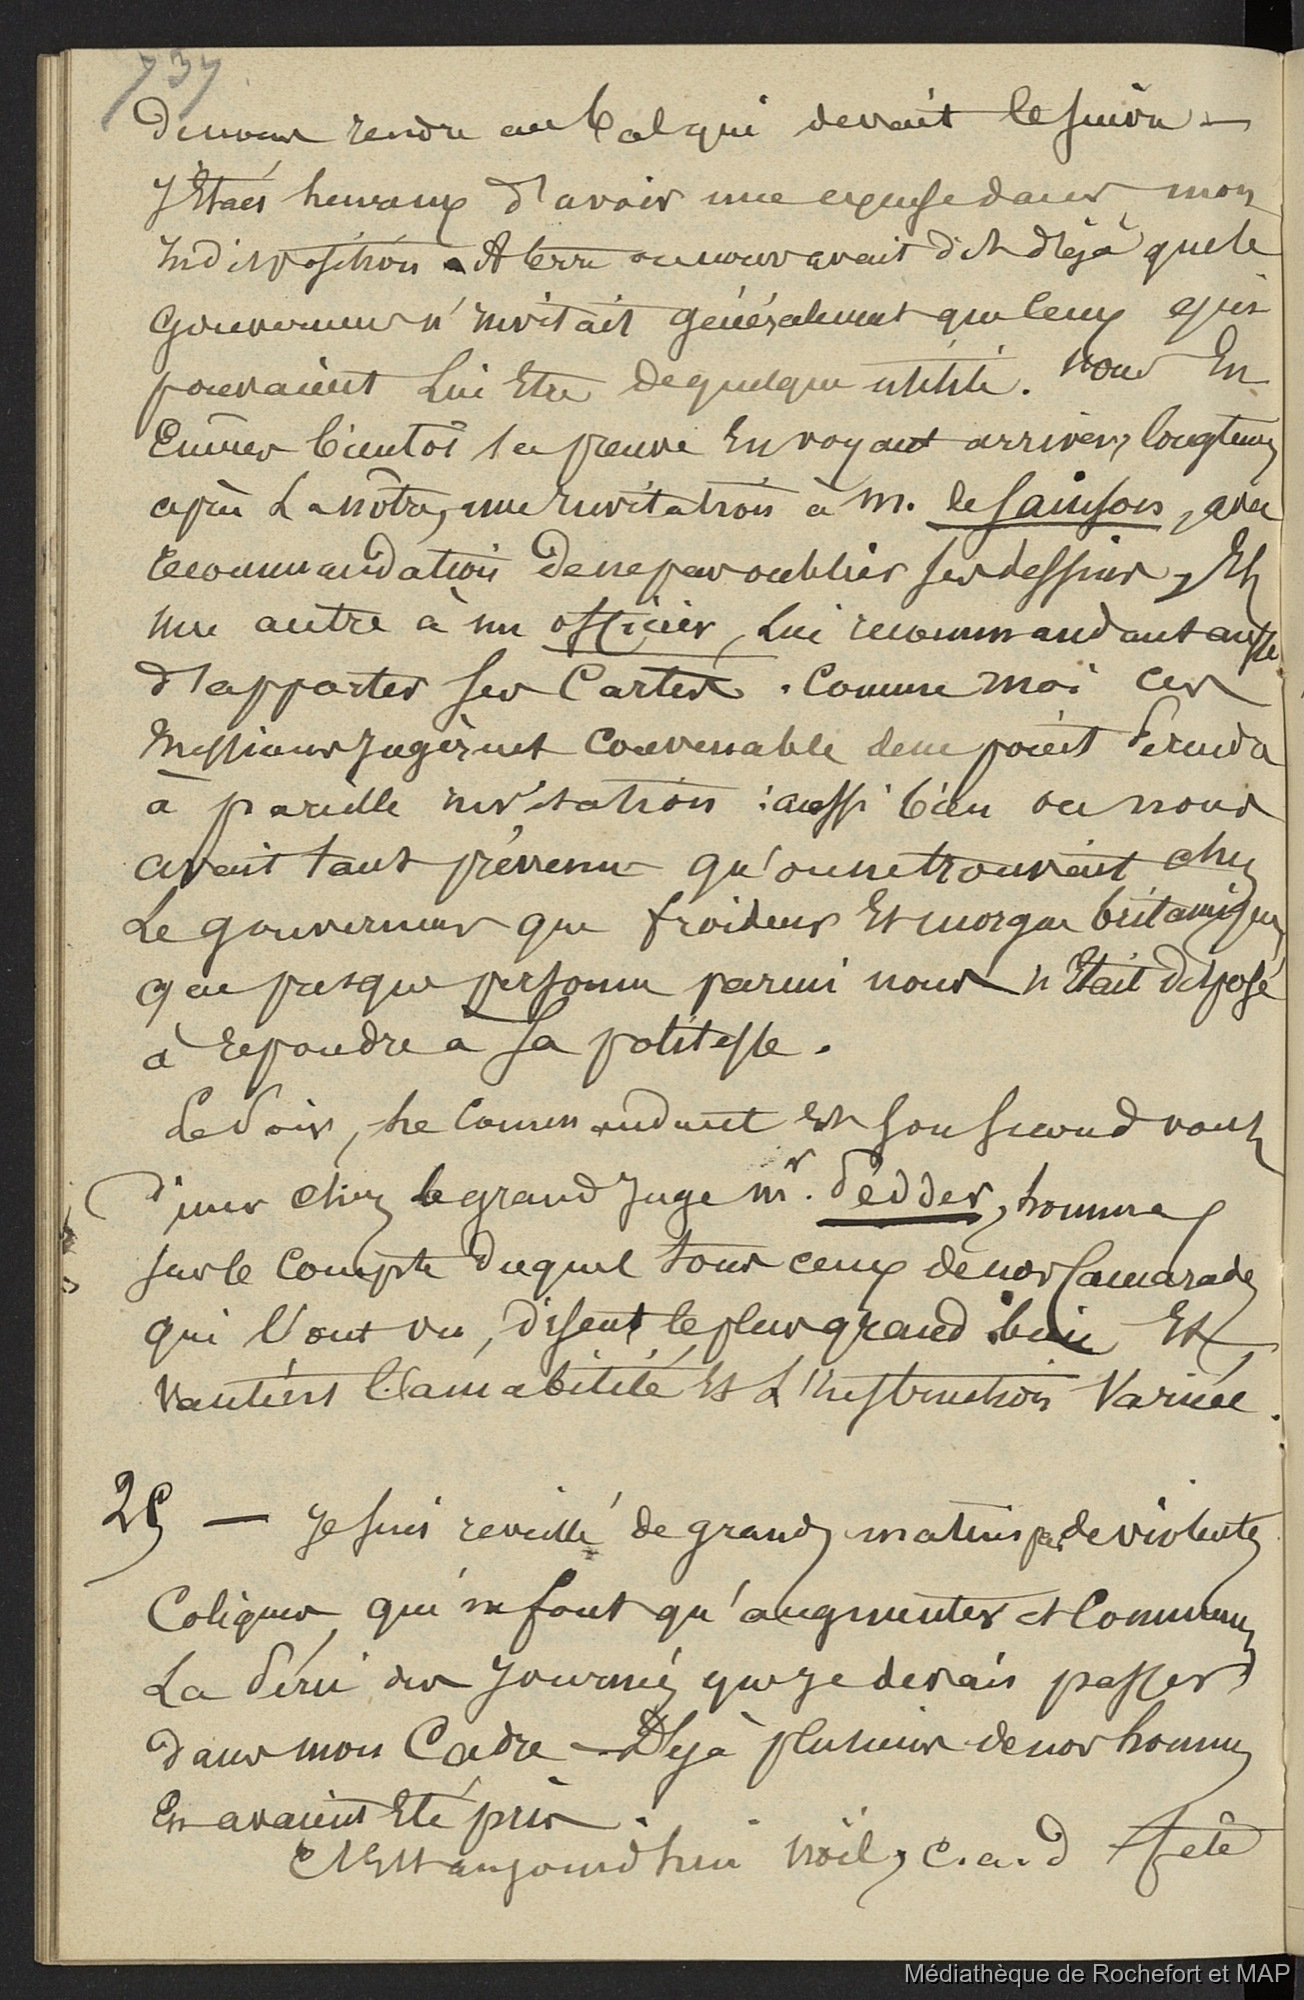 737
de nous rendre au bal qui devait le suivre —
J'Etais heureux d'avoir une excuse dans mon
Indisposition. A terre on nous avait dit déjà que le
gouverneur n'invitait généralement que ceux qui
pouvaient lui Etre de quelque utilité. Nous En
Eumes bientot la preuve En voyant arriver, longtems
après La nôtre, une invitation à M. de Sainson, avec
recommandation de ne pas oublier ses dessins, Et
une autre à un officier, Lui recommandant aussi
d'apporter ses Cartes. Comme moi ces
Messieurs jugèrent convenable de ne point se rendre
à pareille invitation : aussi bien on nous
avait tant prévenu qu'on ne trouvait chez
Le gouverneur que froideur Et morgue britannique,
que presque personne parmi nous n'Etait disposé
à repondre à Sa politesse.
Le Soir, Le Commandant Et Son Second vont
diner chez le grand Juge Mr. Pedder, homme
sur le compte duquel tous ceux de nos Camarades
qui l'ont vu, disent le plus grand bien Et
vantent l'amabilité Et L'Instruction Variée.
25 — Je suis reveillé de grand matin par de violentes
Coliques qui ne font qu'augmenter et Commencer
La Série des Journées que je devais passer
dans mon Cadre — Dejà plusieurs de nos hommes
En avaient Eté pris.
C'Est aujourd'hui Noël, c.a.d fête
Médiathèque de Rochefort et MAP